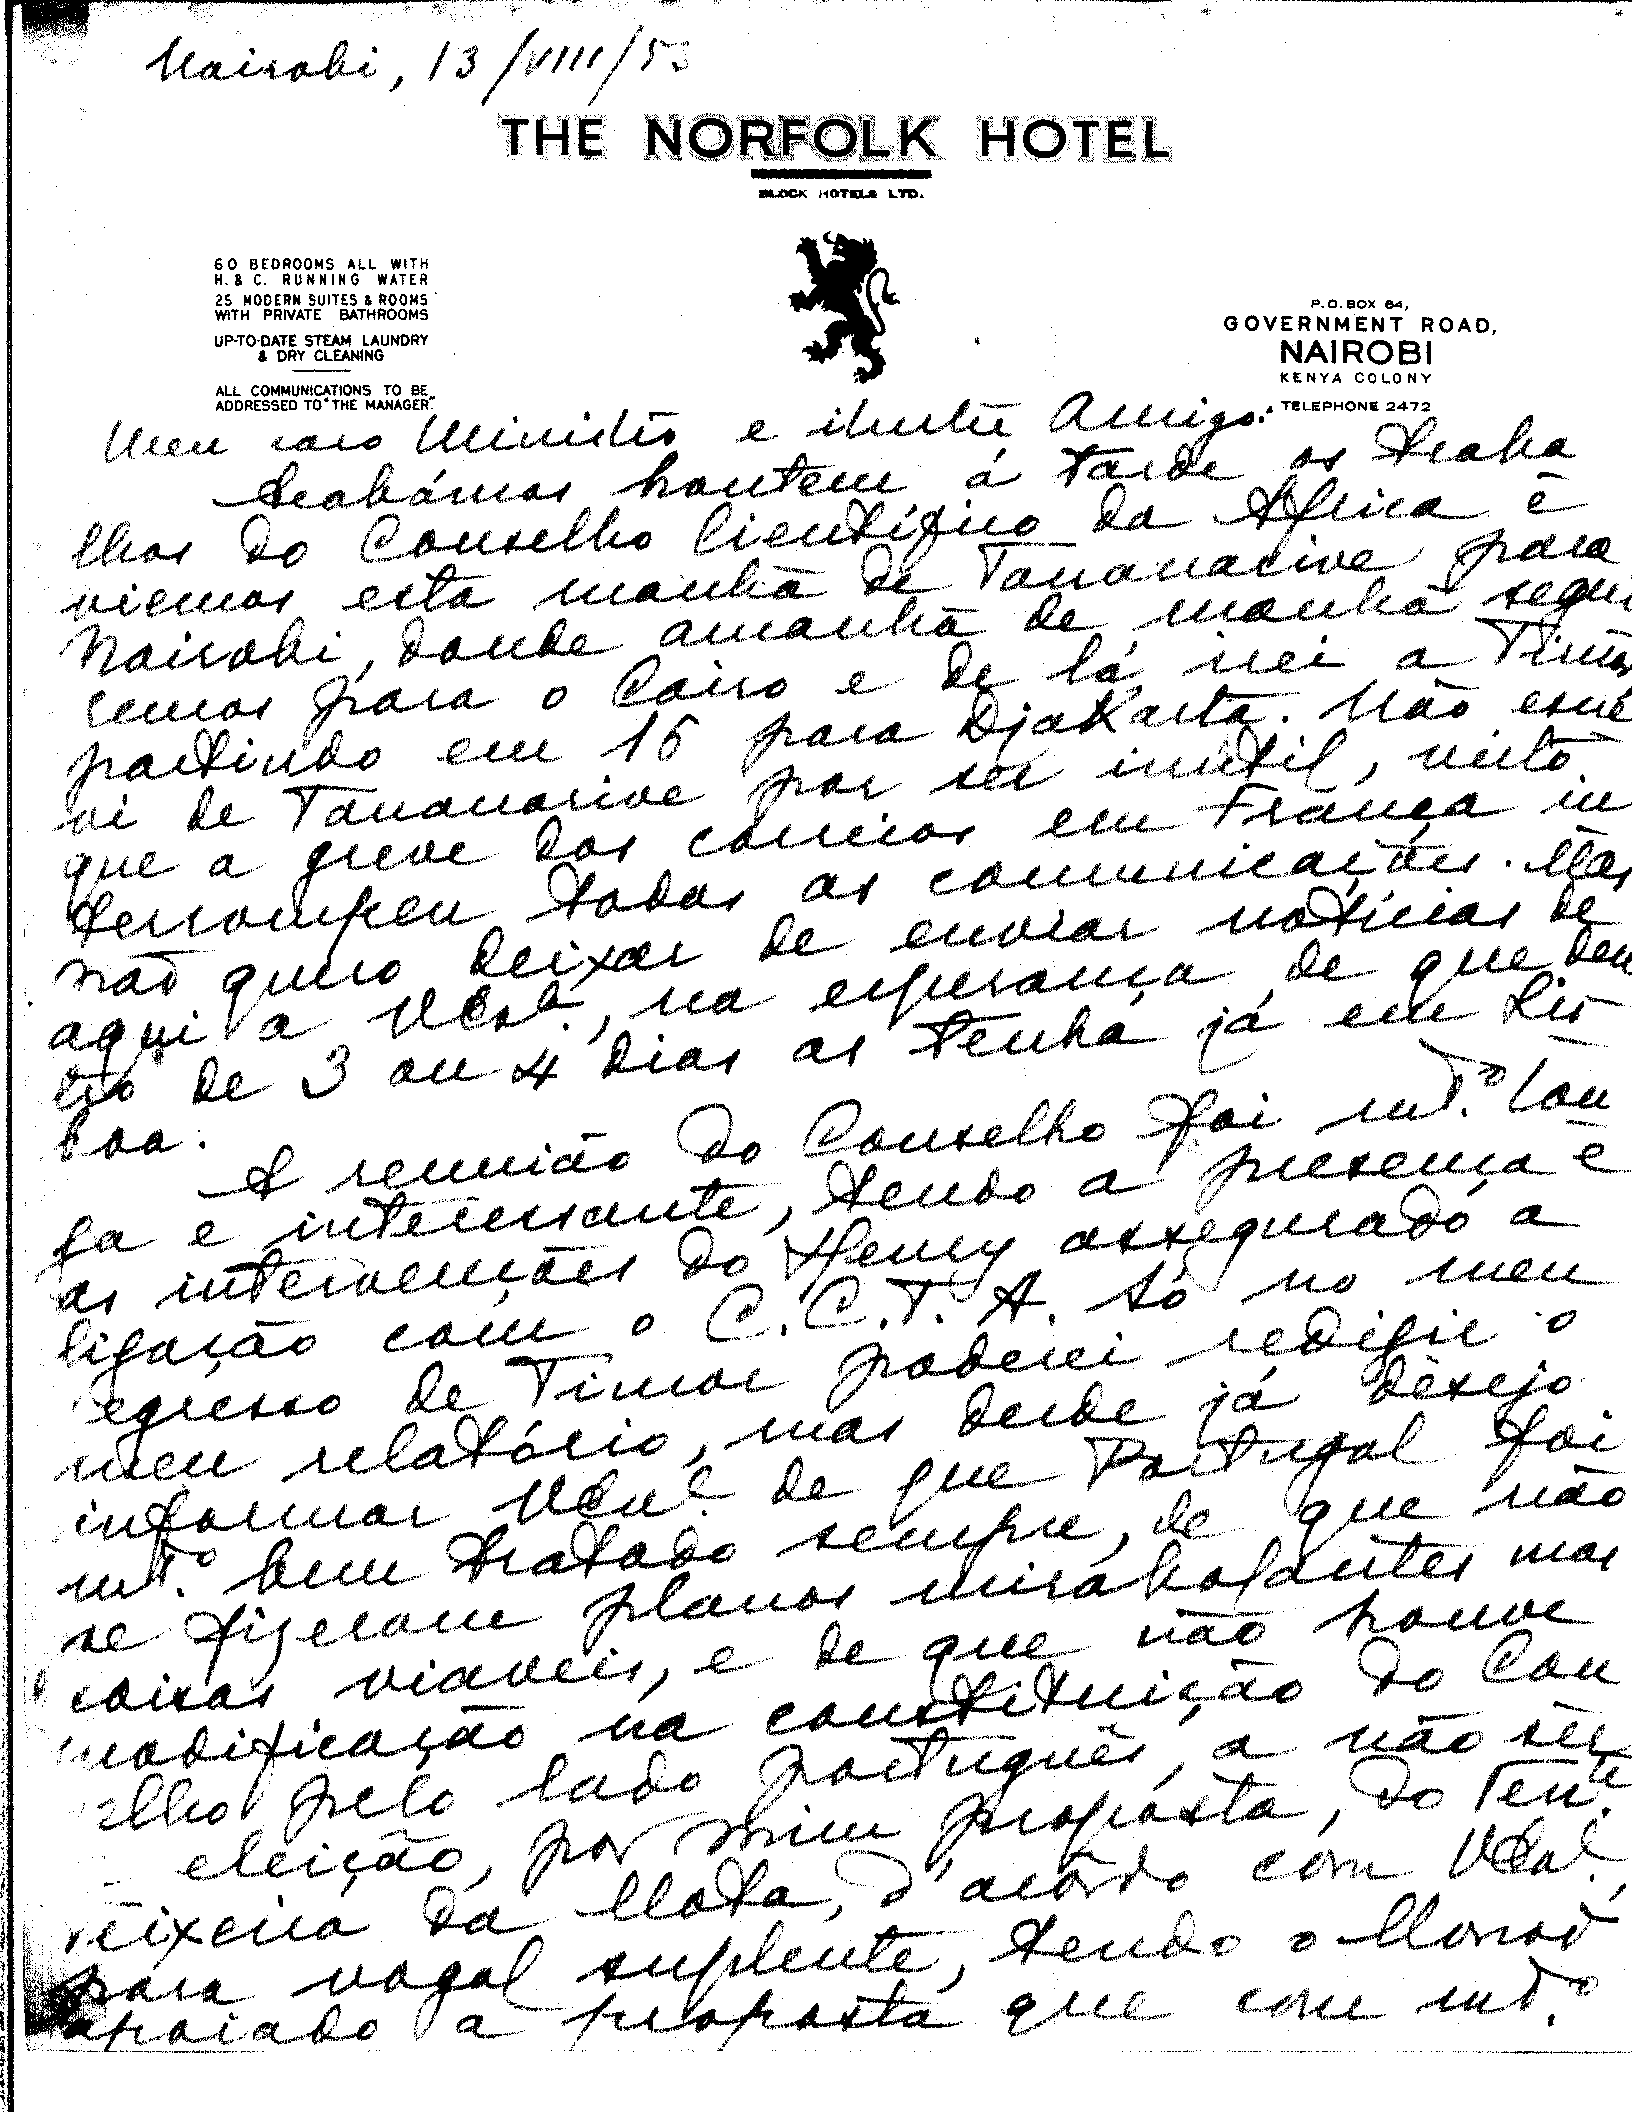 Nairobi, 13/VIII/53
THE NORFOLK HOTEL
BLOCK HOTELS LTD.
60 BEDROOMS ALL WITH
H. & C. RUNNING WATER
25 MODERN SUITES & ROOMS
WITH PRIVATE BATHROOMS
UP-TO-DATE STEAM LAUNDRY
& DRY CLEANING
ALL COMMUNICATIONS TO BE
ADDRESSED TO "THE MANAGER".
P.O. BOX 64,
GOVERNMENT ROAD,
NAIROBI
KENYA COLONY
TELEPHONE 2472
Meu caro Ministro e ilustre Amigo:
Acabámos hontem á tarde os traba
lhos do Conselho Cientifico da Africa e
viemos esta manhã de Tananarive para
Nairobi, donde amanhã de manhã segui
remos para o Cairo e de lá irei a Timor,
partindo em 16 para Djakarta. Não escre
vi de Tananarive por ser inutil, visto
que a greve dos correios em França in
terrompeu todas as comunicações. Mas
não quero deixar de enviar noticias de
aqui a VExª., na esperança de que den
tro de 3 ou 4 dias as tenha já em Lis
boa.
A reunião do Conselho foi mtº. lon
ga e interessante, tendo a presença e
as intervenções do Henry assegurado a
ligação com o C.C.T.A. Só no meu
regresso de Timor poderei redigir o
meu relatório, mas desde já desejo
informar VExª. de que Portugal foi
mtº. bem tratado sempre, de que não
se fizeram planos mirabolantes mas
coisas viaveis, e de que não houve
modificação na constituição do Con
selho pelo lado português, a não ser
a eleição, por mim proposta, do Tenᵗᵉ.
Teixeira da Mota, d'acôrdo com VExª.,
para vogal suplente, tendo o Monod
apoiado a proposta que com mtº.